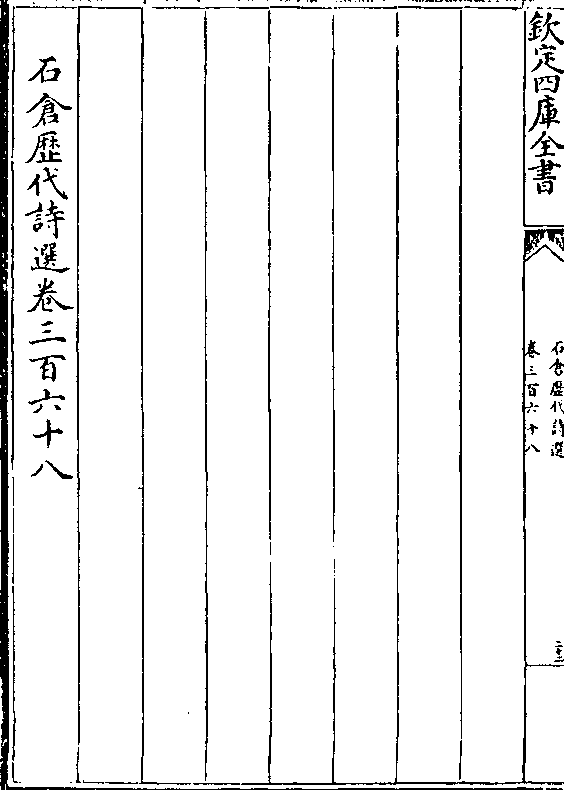 欽定四庫全書
石倉歴代詩選
卷三百六十八
石倉歴代詩選卷三百六十八